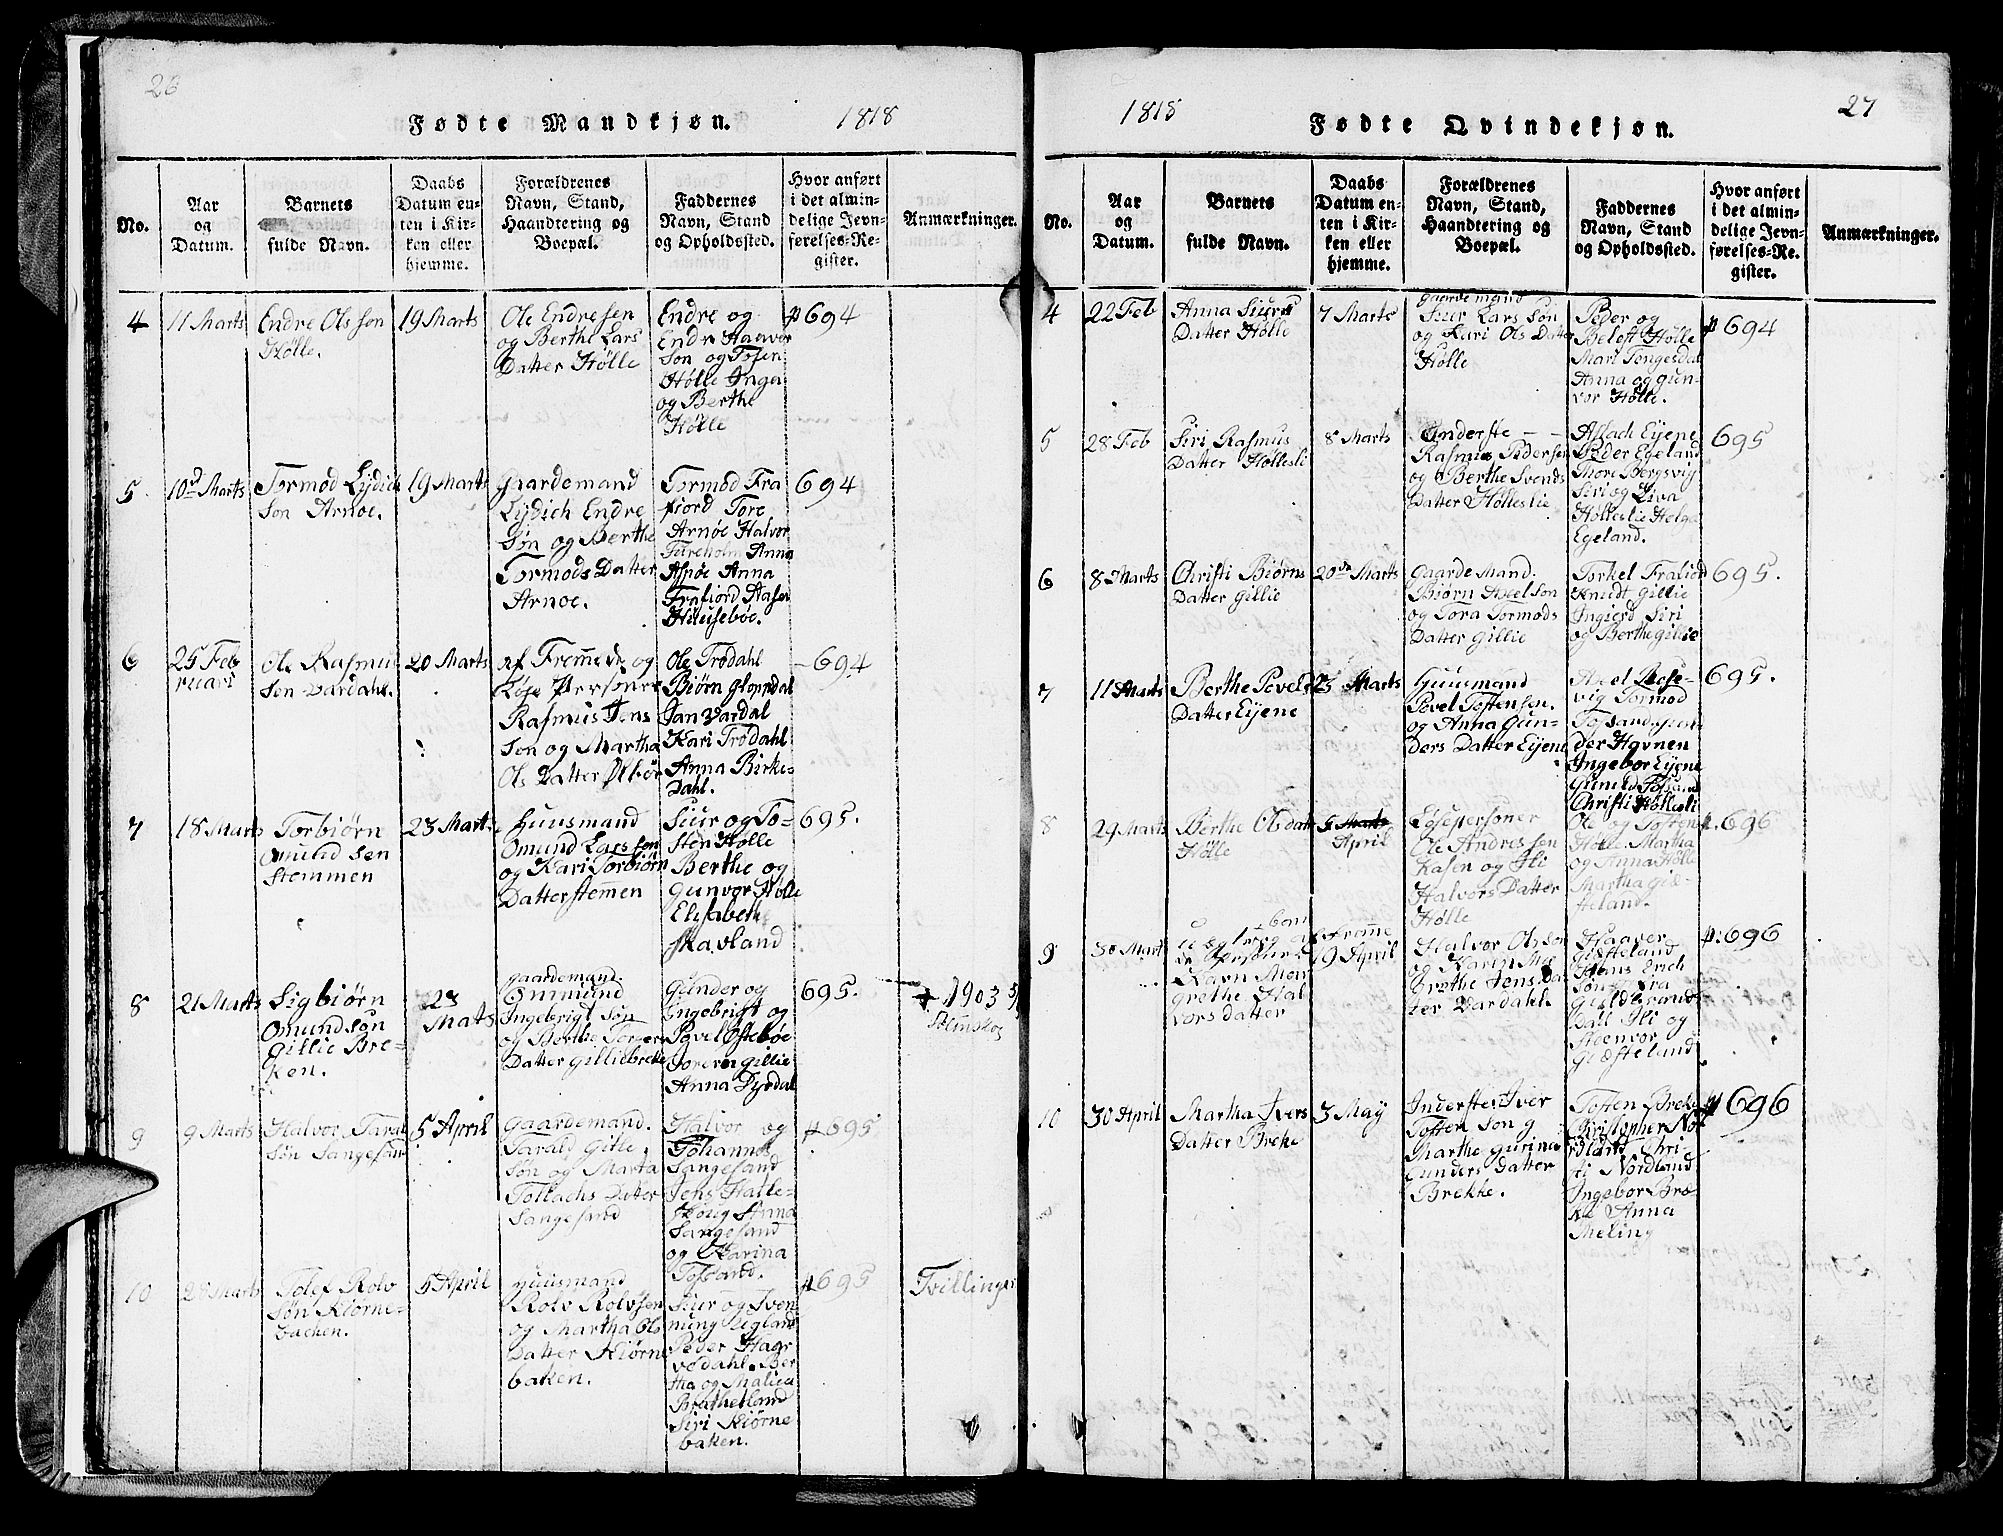 26
Fødte Mandkjøn.
1818
No.
Aar
og
Datum.
Barnets
fulde Navn.
Daabs
Datum en-
ten i Kir-
ken eller
hjemme.
Forældrenes
Navn, Stand,
Haandtering og
Boepæl.
Faddernes
Navn, Stand
og Opholdssted.
Hvor anført
i det almin-
delige Jevn-
førelses-Re-
gister.
Anmærkninger.
4
11 Marts
Endre Ols søn
Hølle.
19 Marts
Ole Endresen
og Berthe Lars
Datter Hølle
Endre og
Endr Haavor
søn og Tosten
Hølle Inger
og Berthe
Hølle
p 694
5.
10d Marts
Tormod Lydich
søn Arnøe.
19 Marts
Gaardemand
Lydich Endre
Søn og Berthe
Tormods Datter
Arnoe.
Tormod Fra
fiord Tore
Arnøe Halvor
Tureholm Anna
Asnøe Anna
Frafiord Aasen
Huusebøe.
694
6
25 Feb
ruari
Ole Rasmus
sen Vardahl.
20 Marts
af Fremede og
Løse Personer
Rasmus Jens
Søn og Martha
Ols Datter
Ole Trødahl
Biørn glopedal
Jan Vardal
Kari Trødahl
Anna Birke-
Dahl.
694
7
18 Marts
Torbiørn
Omund sen
Stemmen
23 Mart.
Huusmand
Omund Lars søn
og Kari Torbiørn
Datter stemen
Siur og To-
sten Hølle
Berthe og
Gunvor Hølle
Elisabeth
skavland
695.
8
21 Marts
Sigbiørn
Omund søn
Gillie Bre-
ken.
23
Mats
gaardemand.
Ommund
Ingebrigt søn
og Berthe Torgers
Datter Gilliebreke
Gunder og
Ingebrigt og
Povel Østebøe
Joren gillie
Anna Dyrdal
695.
+ 1903
9
9 Marts
Halvor Taral
Søn Sangesand
5 April
Gaardemand.
Tarald Gitle
søn og Marta
Tollachs Datter
Sangesand
Halvor og
Johannes
Sangesand
Jens Halle-
skovig Anna
Sangesand
og Karina
Tossand.
p 695
10
28 Marts
Tolef Rolv
søn Kiørne-
bachen.
5 April
Huusmand
Rolv Rolvsen
og Martha Ols
Datter Kiørne
baken.
Siur og Iven
nung Ugland
Peder Haar
vødahl. Ber
tha og Malica
Bratheland
Siri Kiørne
baken.
p 695
Tvillinger
1818
Fødte Qvindekjøn.
27
No.
Aar
og
Datum.
Barnets
fulde Navn.
Daabs
Datum en-
ten i Kir-
ken eller
hjemme.
Forældrenes
Navn, Stand,
Haandtering og
Boepæl.
Faddernes
Navn, Stand
og Opholdssted.
Hvor anført
i det almin-
delige Jevn-
førelses-Re-
gister.
Anmærkninger.
4
22 Feb
Anna Siurs
Datter Hølle
7 Marts
gaardemand
Siur Lars Søn
og Kari Ols Datter
Hølle
Peder og
Belest Hølle
Mari Tengesdal
Anna og gun-
vor Hølle.
p 694
5
28 Feb
Siri Rasmus
Datter Høllesli
8 Marts
Inderste - -
Rasmus Pedersen
og Berthe Svends
Datter Hølleslie
Aslach Eijene
Peder Egeland
Thore Bergsvig
Siri og Liva
Hølleslie Helge
Egeland.
695
6
8 Marts
Christi Biørns
Datter Gillie
20de Marts
Gaarde Mand.
Biørn Axel søn
og Tora Tormods
Datter Gillie
Torkel Frafiord
Knudt Gillie
Ingierd Siri
og Berthe Gillie
695.
7
11 Marts
Berthe Povels
Datter Eijene
23 Marts
Huusmand
Povel Tostensøn.
og Anna Gun-
ders Datter Eijene
Axel
vig Tormod
Tossand, gun-
der Havnen
Ingebor Eijene
Gunild Tossand
Christi Høllesli
695.
8
29 Marts
Berthe Ols datter
Hølle
5 Marts
April
Løsepersoner
Ole Andres sen
Kasen og Ili
Halvors Datter
Hølle
Ole og Tosten
Hølle Martha
og Anna Hølle
Martha Giæ-
steland.
p. 696
9
30 Mart
Navn Mar
grethe Hal
vors datter
19 April
Halvor Olssøn
og Karin Ma
Grethe Jens Dat
ter Vardahl.
Haaver
Giesteland
Hans Erich
Søn fra
Guldbrands
Dall Ili og
Steenvor
Giæsteland
p. 696
10
30 April
Martha Ivers
Datter Breke
3 May
Inderste Iver
Tosten søn og
Marthe Gurina
Gunders Datter
Brekke.
Tosten Breke
Christopher No
rdland Chri
sti Nordland
Ingebor Bræ-
ke Anna
Meling
p 696